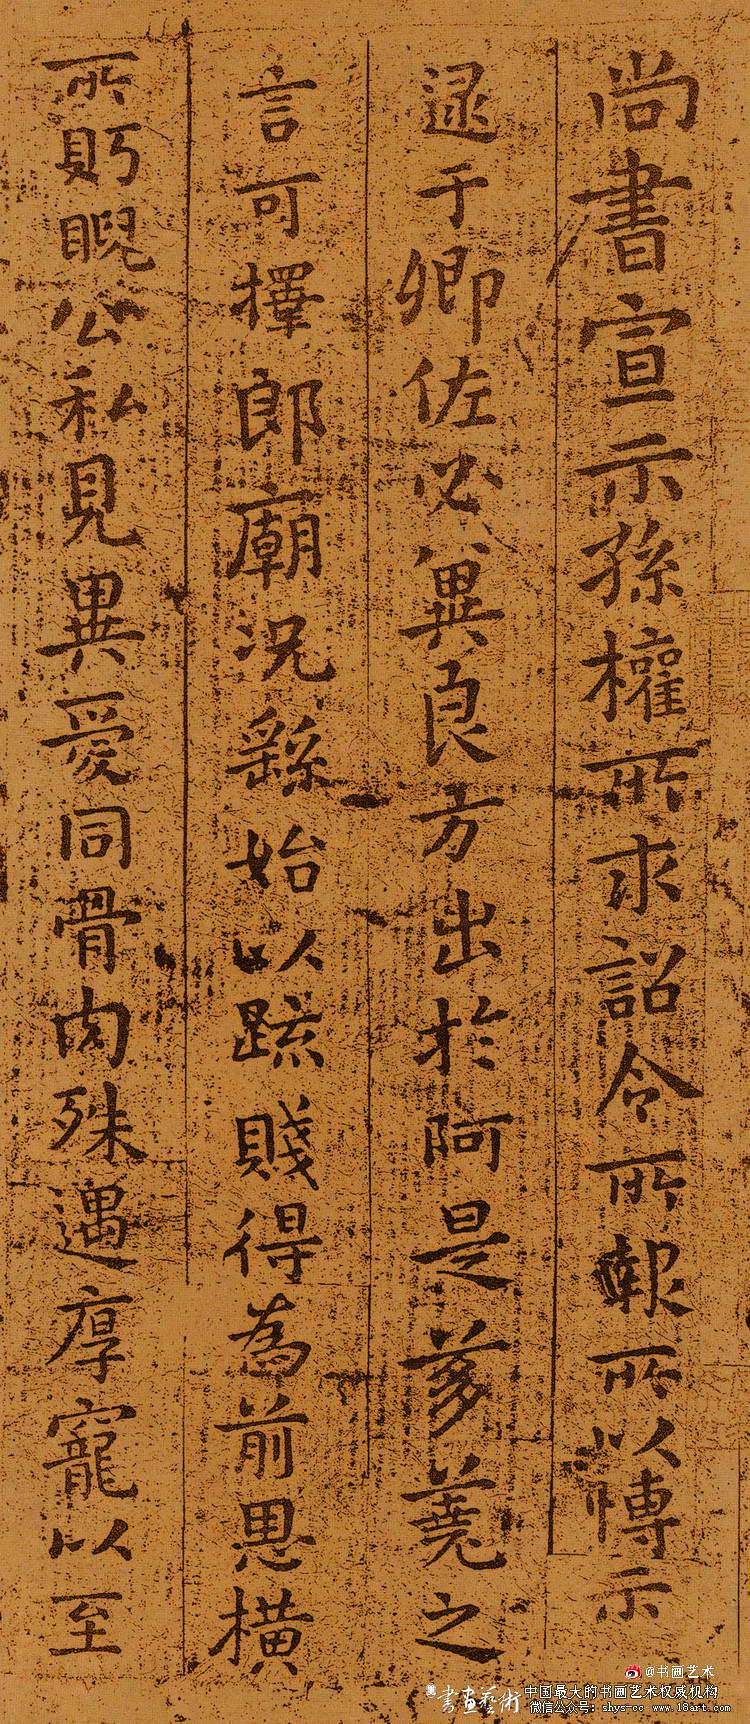 尚書宣示孫權所求詔令所報所以博示
逮于卿佐必冀良方出於阿是芻蕘之
言可擇郎廟況繇始以踈賤得為前恩橫
所盱睨公私見異愛同骨肉殊遇厚寵以至
@书画艺术
書画藝術
中国最大的书画艺术权威机构
微信公众号：shys-cc www.18art.com